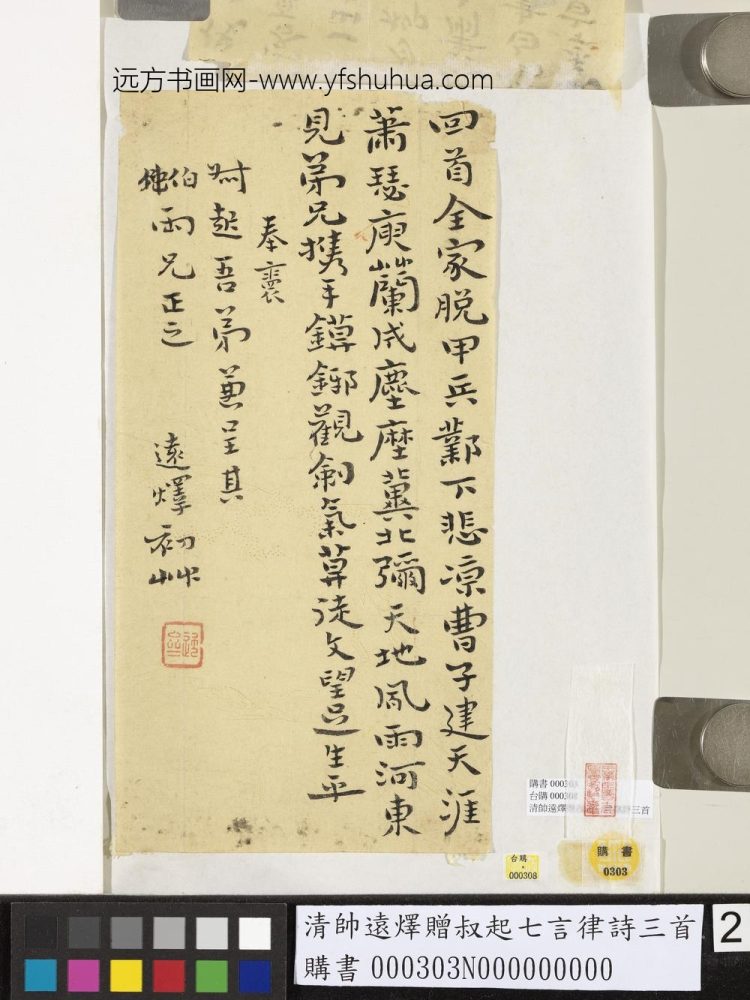 远方书画网-www.yfshuhua.com
回首全家脱甲兵鄴下悲涼曹子建天涯
萧瑟庾蘭成塵壓冀北彌天地風雨河東
見弟兄携手鏌鋣觀劍氣莫徒文望過生平
奉褱
叔起吾弟兼呈其
伯
雨兄正之
遠燡初艸
購書 000303
台購 000308
清帥遠燡 三首
台購
000308
購書
0303
清帥遠燡贈叔起七言律詩三首
購書 000303N000000000
2